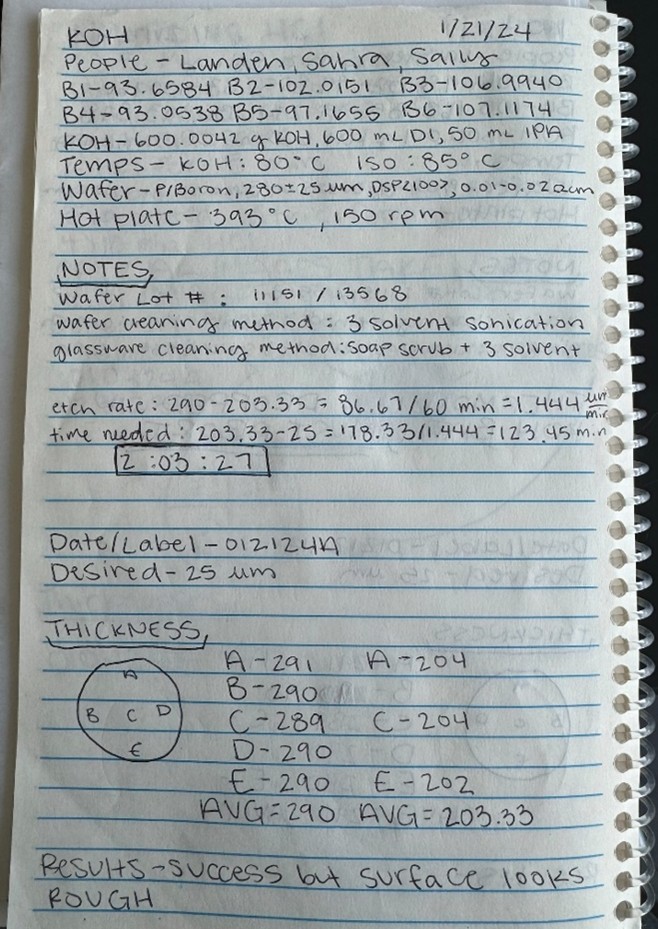 KOH 1/21/24
People - Landen, Sahra, Sally
B1-93.6584 B2-102.0151 B3-106.9940
B4-93.0538 B5-97.1655 B6-107.1174
KOH-600.0042 g KOH, 600 mL DI, 50 mL IPA
Temps- KOH: 80°C ISO: 85°C
Wafer-P/Boron, 280±25 um, DSP<100>, 0.01-0.02 Ωcm
Hot plate- 393°C, 150 rpm
NOTES
Wafer Lot #: 11151 / 13568
wafer cleaning method: 3 solvent sonication
glassware cleaning method: soap scrub + 3 solvent
etch rate: 290-203.33 = 86.67/60 min = 1.444 um/min
time needed: 203.33-25 = 178.33/1.444 = 123.45 min
2:03:27
Date/Label - 012124A
Desired- 25 um
THICKNESS
A A-291 A-204
B-290
B C D C-289 C-204
D-290
E E-290 E-202
AVG=290 AVG=203.33
Results-success but surface looks
ROUGH